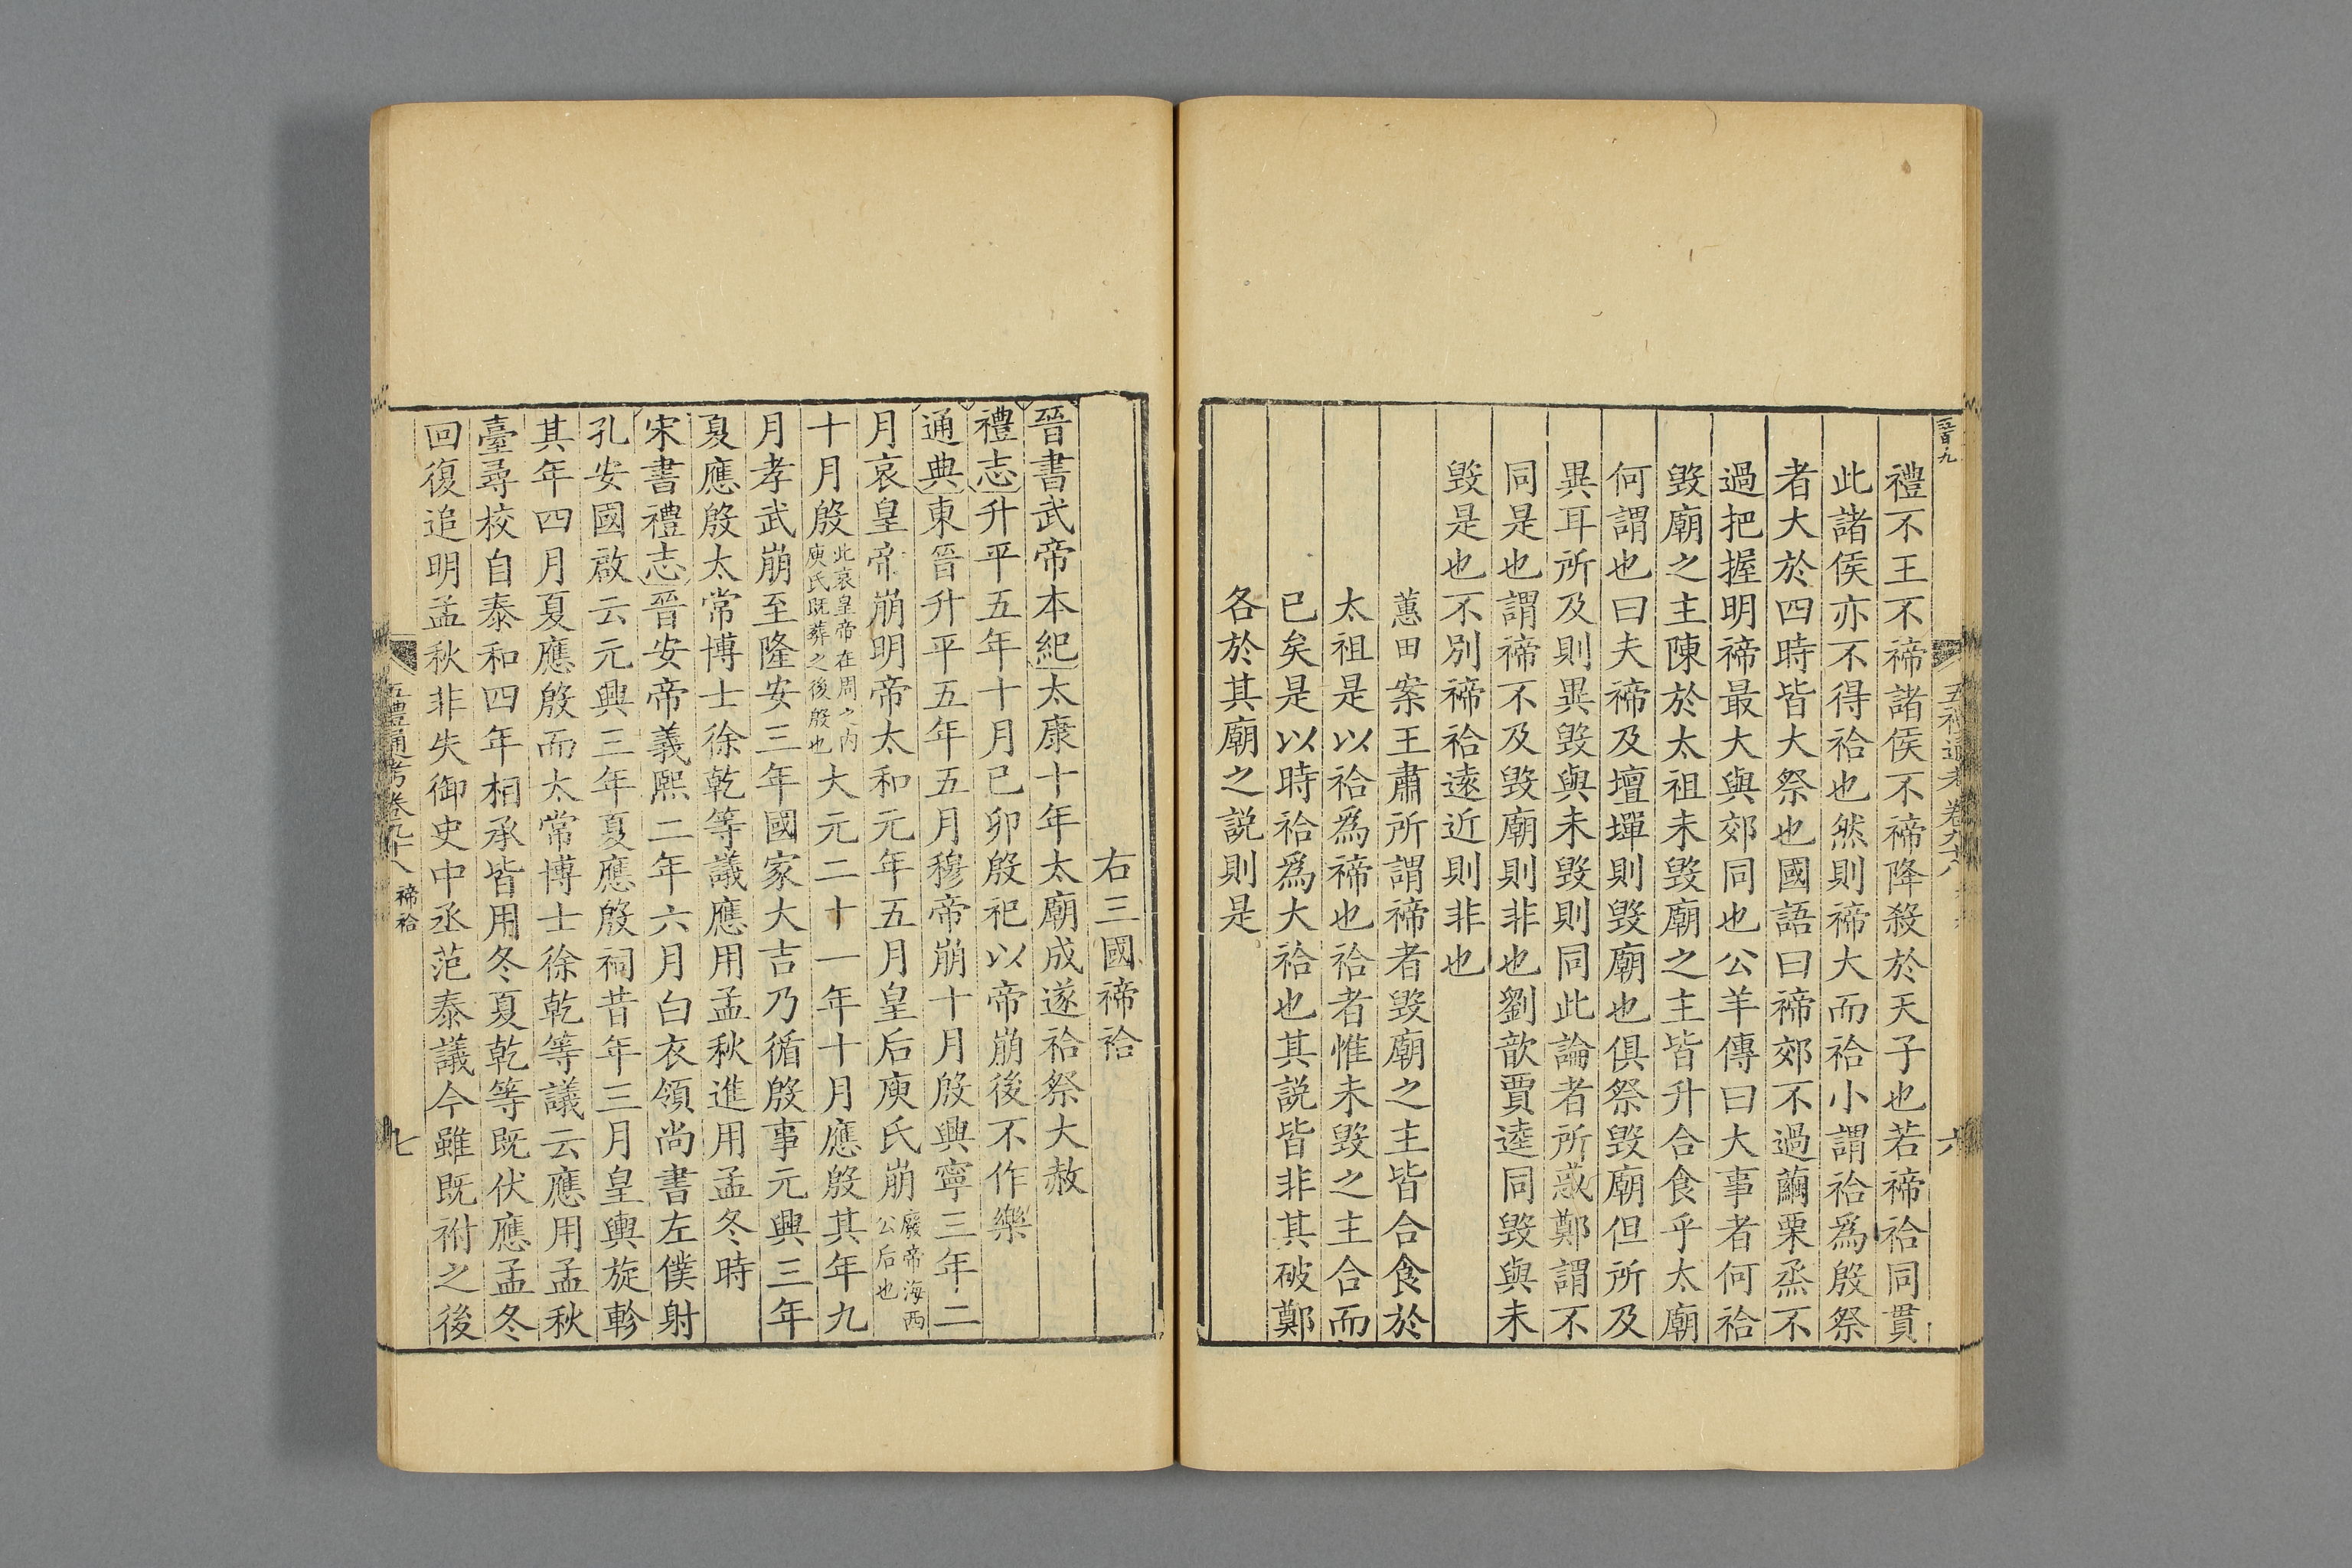 五百九
五禮通考卷九十八
六
禮不王不禘諸侯不禘降殺於天子也若禘祫同貫
此諸侯亦不得祫也然則禘大而祫小謂祫爲殷祭
者大於四時皆大祭也國語曰禘郊不過繭栗烝不
過把握明禘最大與郊同也公羊傳曰大事者何祫
毀廟之主陳於太祖未毀廟之主皆升合食乎太廟
何謂也曰夫禘及壇墠則毀廟也俱祭毀廟但所及
異耳所及則異毀與未毀則同此論者所惑鄭謂不
同是也謂禘不及毀廟則非也劉歆賈逵同毀與未
毀是也不別禘祫遠近則非也
蕙田案王肅所謂禘者毀廟之主皆合食於
太祖是以祫爲禘也祫者惟未毀之主合而
已矣是以時祫爲大祫也其説皆非其破鄭
各於其廟之説則是
右三國禘祫
晉書武帝本紀太康十年太廟成遂祫祭大赦
禮志升平五年十月己卯殷祀以帝崩後不作樂
通典東晉升平五年五月穆帝崩十月殷興寧三年二
月哀皇帝崩明帝太和元年五月皇后庾氏崩廢帝海西公后也
十月殷此哀皇帝在周之内庾氏既葬之後殷也大元二十一年十月應殷其年九
月孝武崩至隆安三年國家大吉乃循殷事元興三年
夏應殷太常博士徐乾等議應用孟秋進用孟冬時
宋書禮志晉安帝義熙二年六月白衣領尚書左僕射
孔安國啟云元興三年夏應殷祠昔年三月皇輿旋軫
其年四月夏應殷而太常博士徐乾等議云應用孟秋
臺尋校自泰和四年相承皆用冬夏乾等既伏應孟冬
回復追明孟秋非失御史中丞范泰議今雖既祔之後
五禮通考卷九十八 禘祫
七